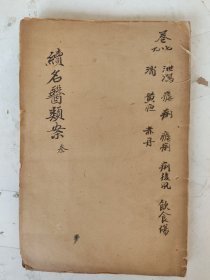 卷
泄瀉 瘧 痢 瘧痢 痢後風 飲食傷
九 消 黃疸 赤丹
續名醫類案 叁